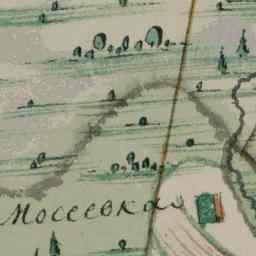 Мосеевка